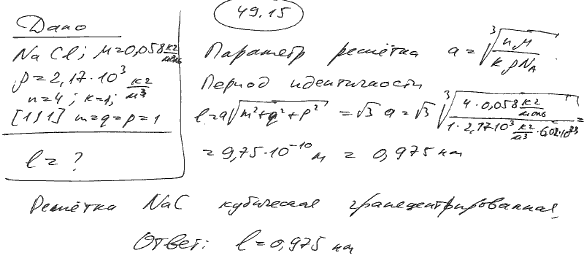 49.15
Дано
NaCl; M=0,058 кг/моль
ρ=2,17·10³ кг/м³
n=4; k=1;
[111] m=q=p=1
l=?
Параметр решётки a = ∛(nM/(kρN_A)).
Период идентичности
l=a√(m²+q²+p²) = √3 a = √3 ∛(4·0,058 кг/моль / (1·2,17·10³ кг/м³·6,02·10²³)) =
= 9,75·10⁻¹⁰ м = 0,975 нм
Решётка NaC кубическая гранецентрированная,
Ответ: l=0,975 нм